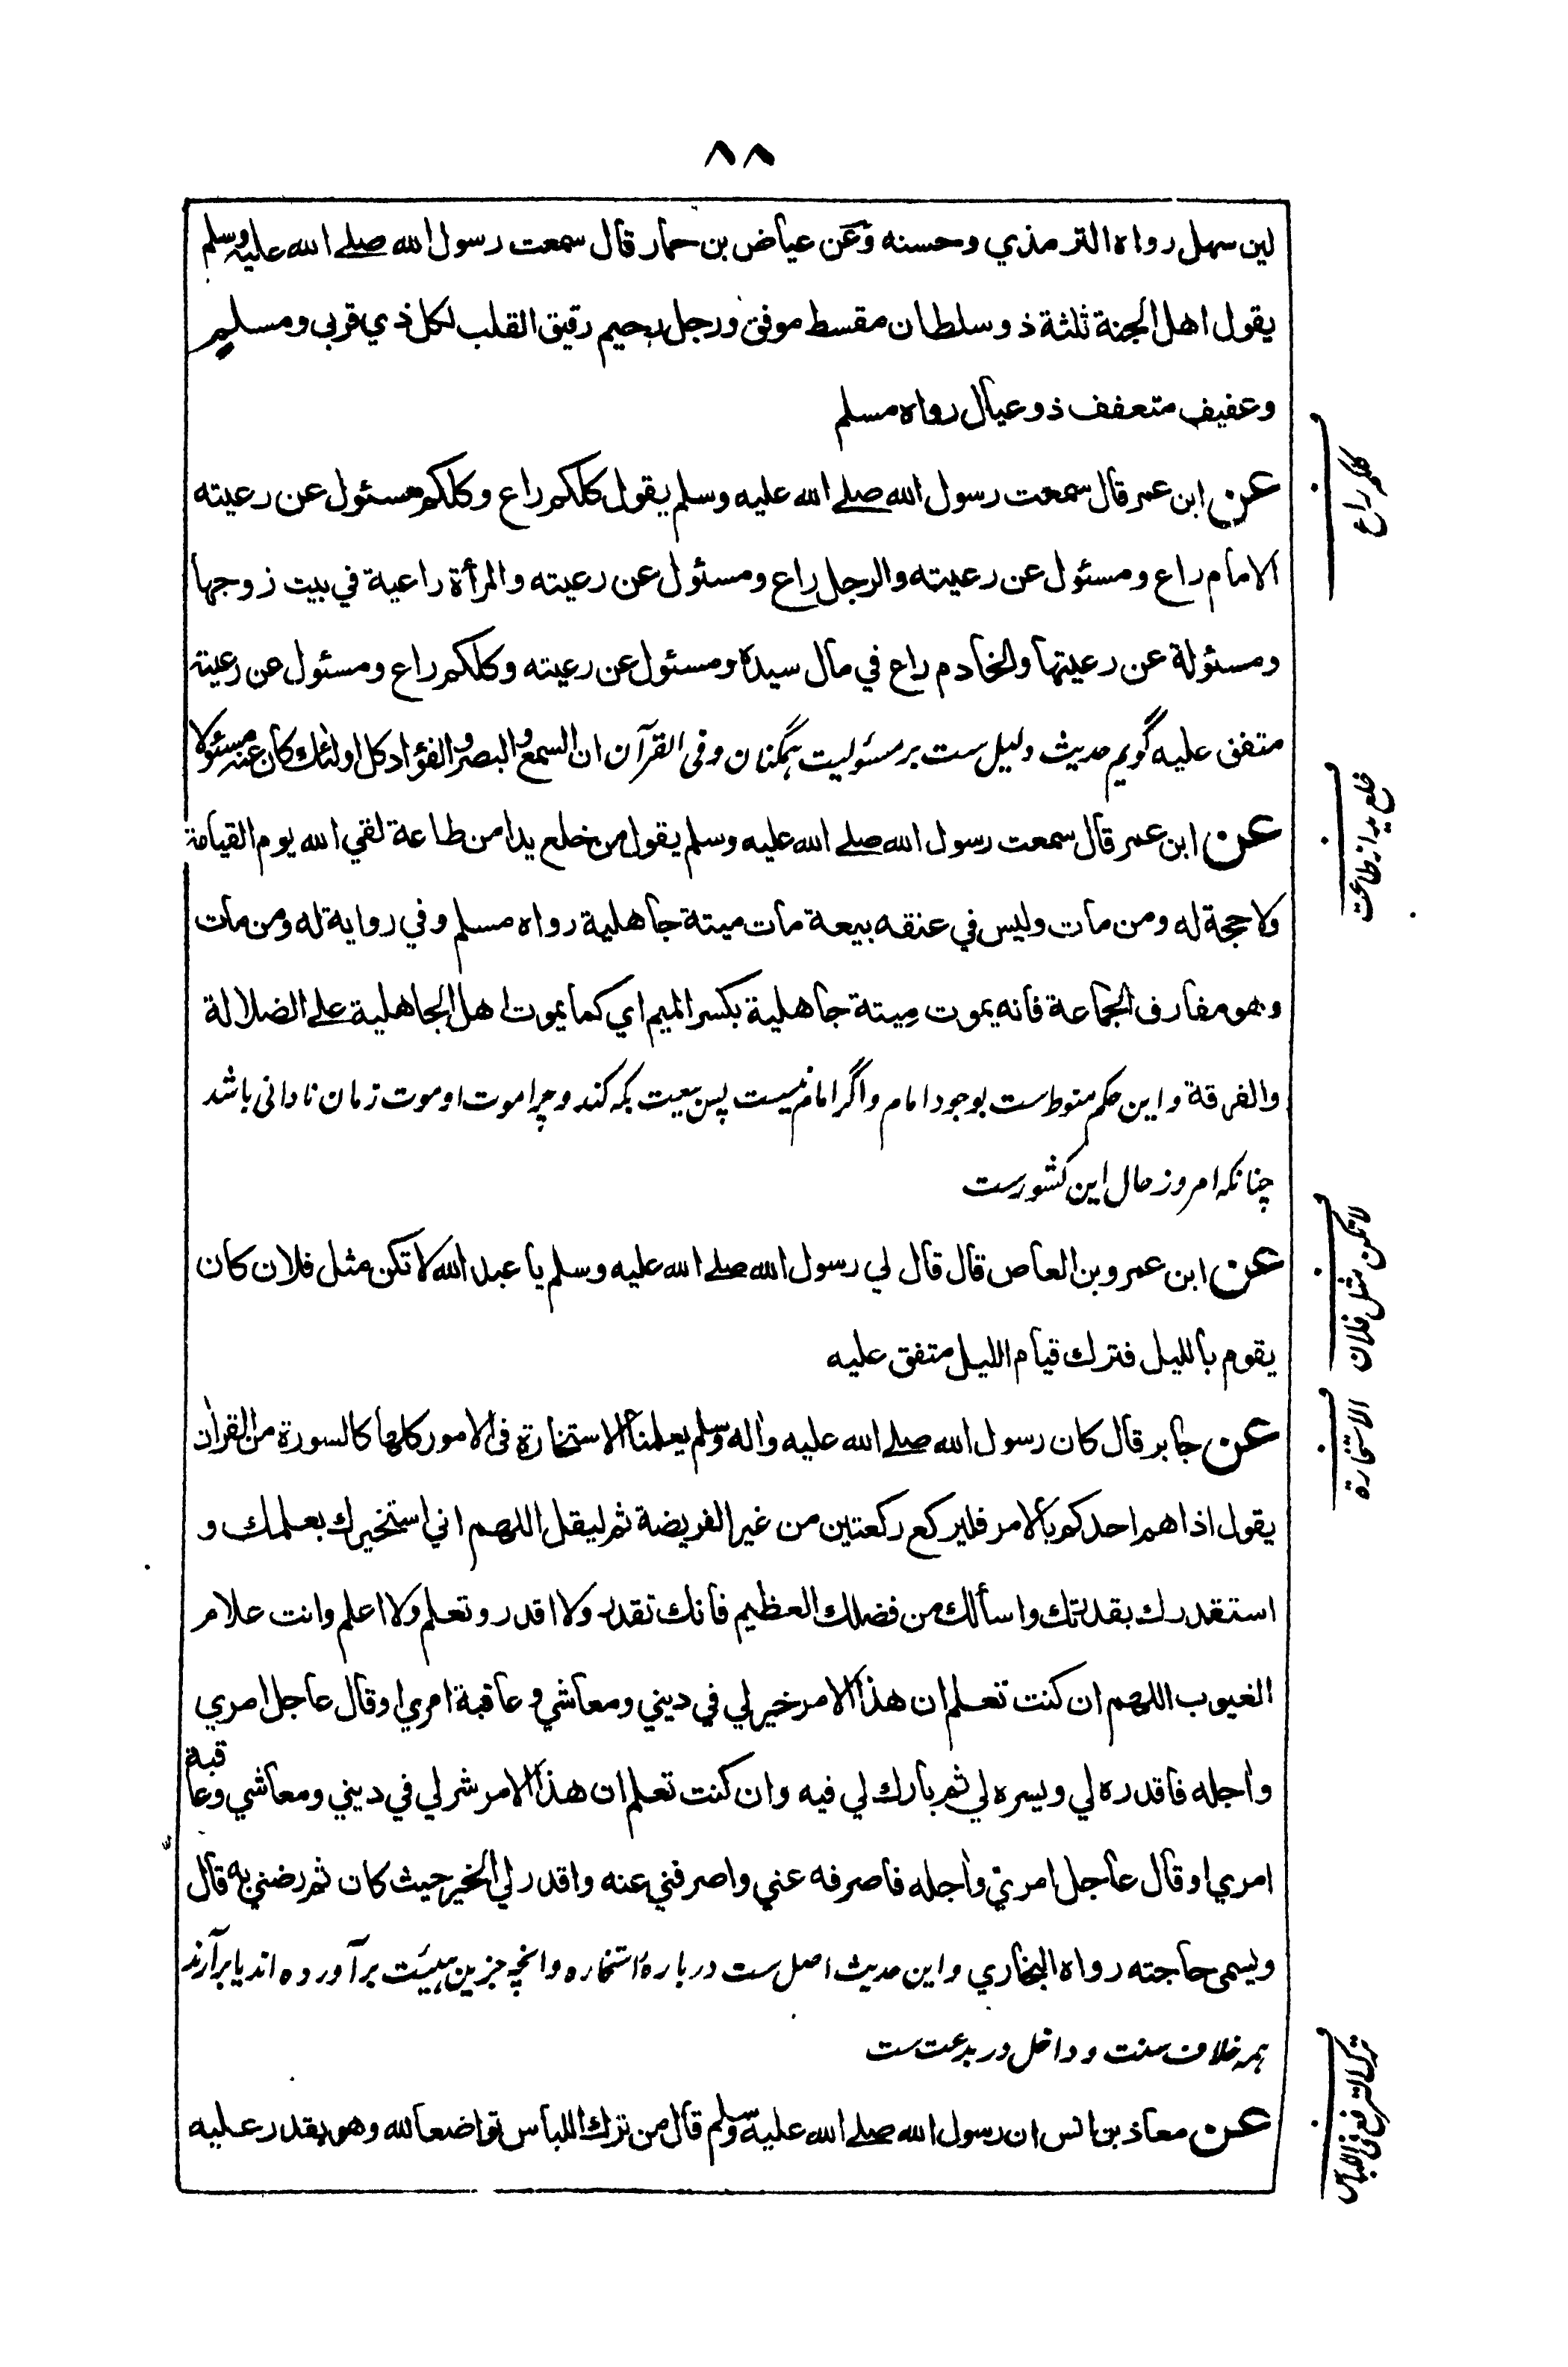 ٨٨
لين سهل رواه الترمذي وحسنه وعن عياض بن حمار قال سمعت رسول الله صلے الله عليه وسلم
يقول اهل الجنة ثلثة ذو سلطان مقسط موفق ورجل رحيم رقيق القلب لكل ذي قربى ومسلم
وعفيف متعفف ذو عيال رواه مسلم
عن ابن عمر قال سمعت رسول الله صلے الله عليه وسلم يقول كلكم راع وكلكم مسئول عن رعيته
الامام راع ومسئول عن رعيته والرجل راع ومسئول عن رعيته والمرأة راعية في بيت زوجها
ومسئولة عن رعيتها والخادم راع في مال سيده ومسئول عن رعيته وكلكم راع ومسئول عن رعيته
متفق عليه گويم حديث دليل ست بر مسئوليت همگنان وفى القرآن ان السمع والبصر والفؤاد كل اولئك كان عنه مسئولا
عن ابن عمر قال سمعت رسول الله صلے الله عليه وسلم يقول من خلع يدا من طاعة لقي الله يوم القيامة
ولا حجة له ومن مات وليس في عنقه بيعة مات ميتة جاهلية رواه مسلم وفي رواية له ومن مات
وهو مفارق الجماعة فانه يموت مِيتة جاهلية بكسر الميم اي كما يموت اهل الجاهلية علے الضلالة
والفرقة واين حكم منوط ست بوجود امام واگر امام نيست پس بيعت بكه كند وچرا موت او موت زمان نادانى باشد
چنانكه امروز حال اين كشورست
عن ابن عمرو بن العاص قال قال لي رسول الله صلے الله عليه وسلم يا عبد الله لا تكن مثل فلان كان
يقوم بالليل فترك قيام الليل متفق عليه
عن جابر قال كان رسول الله صلے الله عليه واله وسلم يعلمنا الاستخارة فى الامور كلها كالسورة من القران
يقول اذا هم احدكم بالامر فليركع ركعتين من غير الفريضة ثم ليقل اللهم اني استخيرك بعلمك و
استقدرك بقدرتك واسألك من فضلك العظيم فانك تقدر ولا اقدر وتعلم ولا اعلم وانت علام
الغيوب اللهم ان كنت تعلم ان هذا الامر خير لي في ديني ومعاشي وعاقبة امري او قال عاجل امري
واجله فاقدره لي ويسره لي ثم بارك لي فيه وان كنت تعلم ان هذا الامر شر لي في ديني ومعاشي وعاقبة
امري او قال عاجل امري واجله فاصرفه عني واصرفني عنه واقدر لي الخير حيث كان ثم رضني به قال
ويسمى حاجته رواه البخاري واين حديث اصل ست دربارهٔ استخاره وانچه جزين هيئت برآورده اند يا برآرند
همه خلاف سنت وداخل در بدعت ست
عن معاذ بن انس ان رسول الله صلے الله عليه وسلم قال من ترك اللباس تواضعا لله وهو يقدر عليه
كلكم راع
خلع يد از طاعت
لا تكن مثل فلان
الاستخارة
ترك الترفع في اللباس